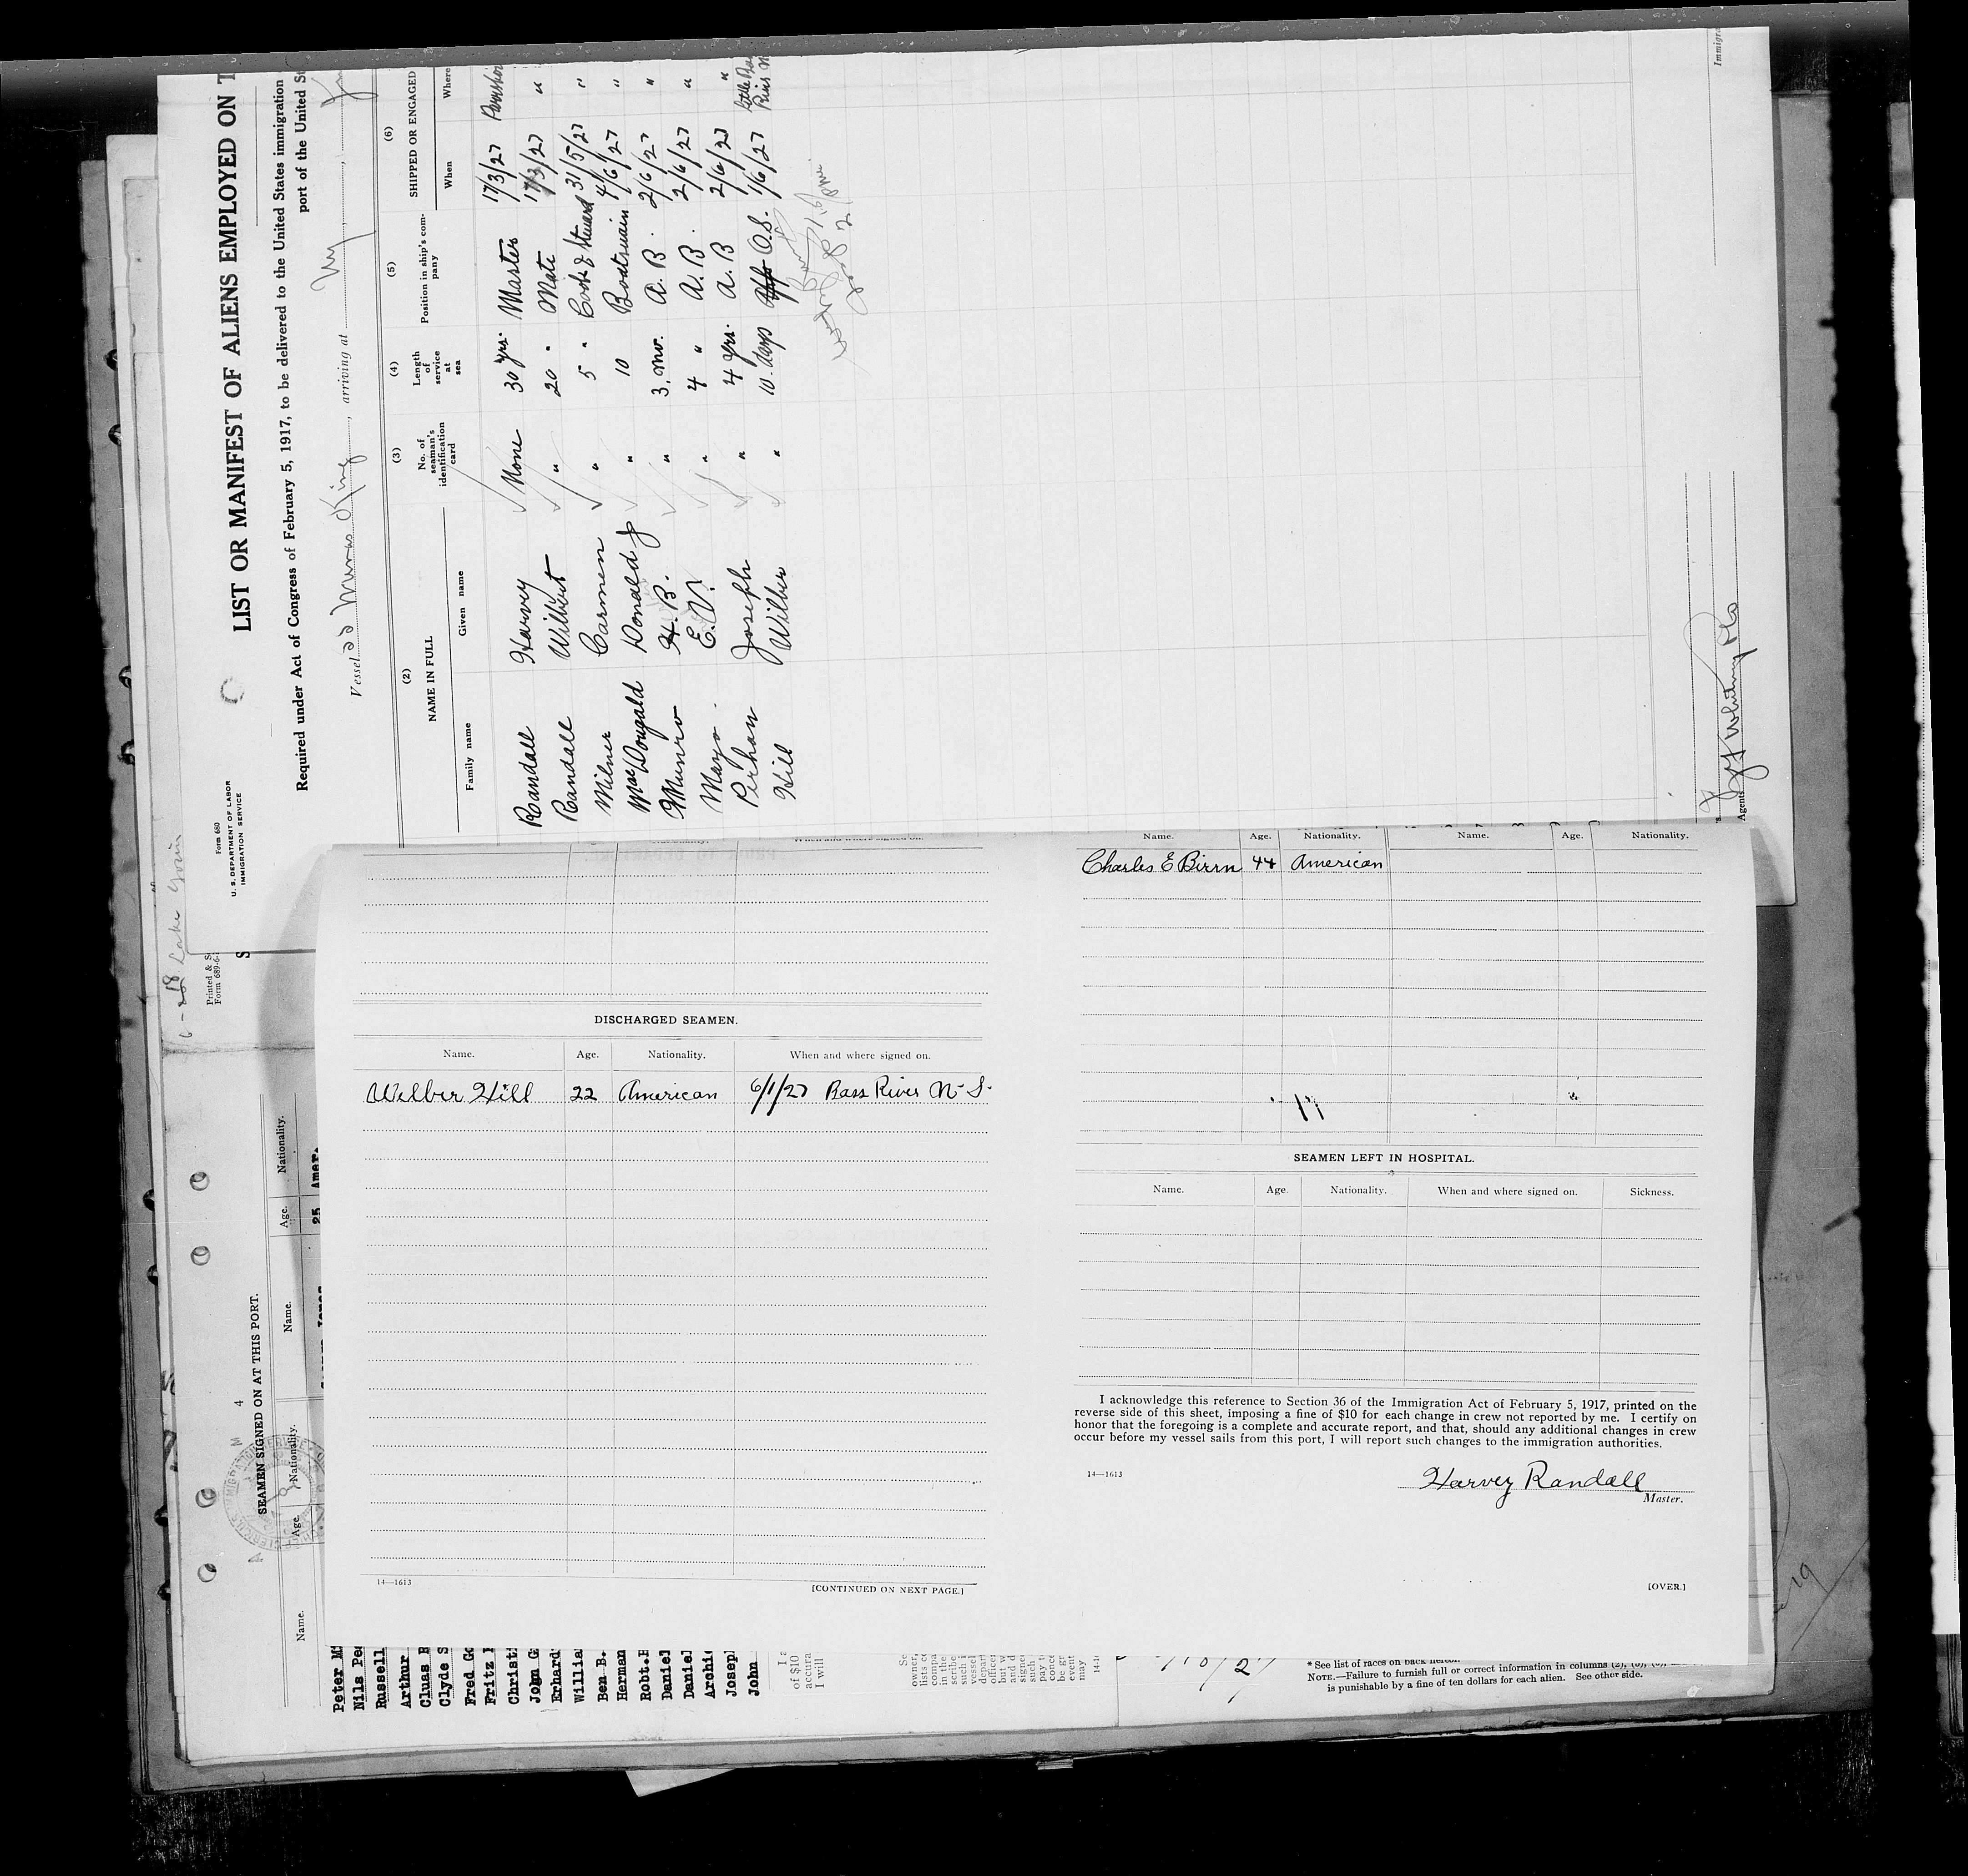 Form 680
U. S. DEPARTMENT OF LABOR
IMMIGRATION SERVICE
LIST OR MANIFEST OF ALIENS EMPLOYED ON T
Required under Act of Congress of February 5, 1917, to be delivered to the United States immigration
port of the United St
Vessel , arriving at
(2) (3) (4) (5) (6)
NAME IN FULL No. of seaman's identification card Length of service at sea Position in ship's company SHIPPED OR ENGAGED
Family name Given name When Where
Randall Harvey None 30 yrs. Master 17/3/27
Randall Wilbert " 20 " Mate 17/3/27 "
Milner Carmen " 5 " Cook & Steward 31/5/27 "
MacDougald Donald J " 10 Boatswain 4/6/27 "
Munro H. B. " 3. mo. A. B. 2/6/27 "
Mayo E. V. " 4 " A. B. 2/6/27 "
Perhan Joseph " 4 yrs. A. B 2/6/27 "
Hill Wilber " 10 days O.S. 1/6/27
Agents
Immigra
Printed & S
Form 689-6-
4
SEAMEN SIGNED ON AT THIS PORT.
Name. Age. Nationality. Name. Age. Nationality.
25 Amer.
Peter M
Nils Pe
Russell
Arthur
Cluas B
Clyde S
Fred Go
Fritz
Christ
John G
Erhard
Willia
Ben B.
Herman
Robt.
Daniel
Daniel
Archi
Josep
John
of $10
accura
I will
DISCHARGED SEAMEN.
Name. Age. Nationality. When and where signed on.
Wilber Hill 22 American 6/1/27 Bass River N-S.
14—1613
[CONTINUED ON NEXT PAGE.]
Name. Age. Nationality. Name. Age. Nationality.
Charles E Birrn 44 American
SEAMEN LEFT IN HOSPITAL.
Name. Age. Nationality. When and where signed on. Sickness.
I acknowledge this reference to Section 36 of the Immigration Act of February 5, 1917, printed on the
reverse side of this sheet, imposing a fine of $10 for each change in crew not reported by me. I certify on
honor that the foregoing is a complete and accurate report, and that, should any additional changes in crew
occur before my vessel sails from this port, I will report such changes to the immigration authorities.
14—1613
Harvey Randall
Master.
[OVER.]
* See list of races on back hereof.
NOTE.—Failure to furnish full or correct information in columns (2), (5), (6),
is punishable by a fine of ten dollars for each alien. See other side.